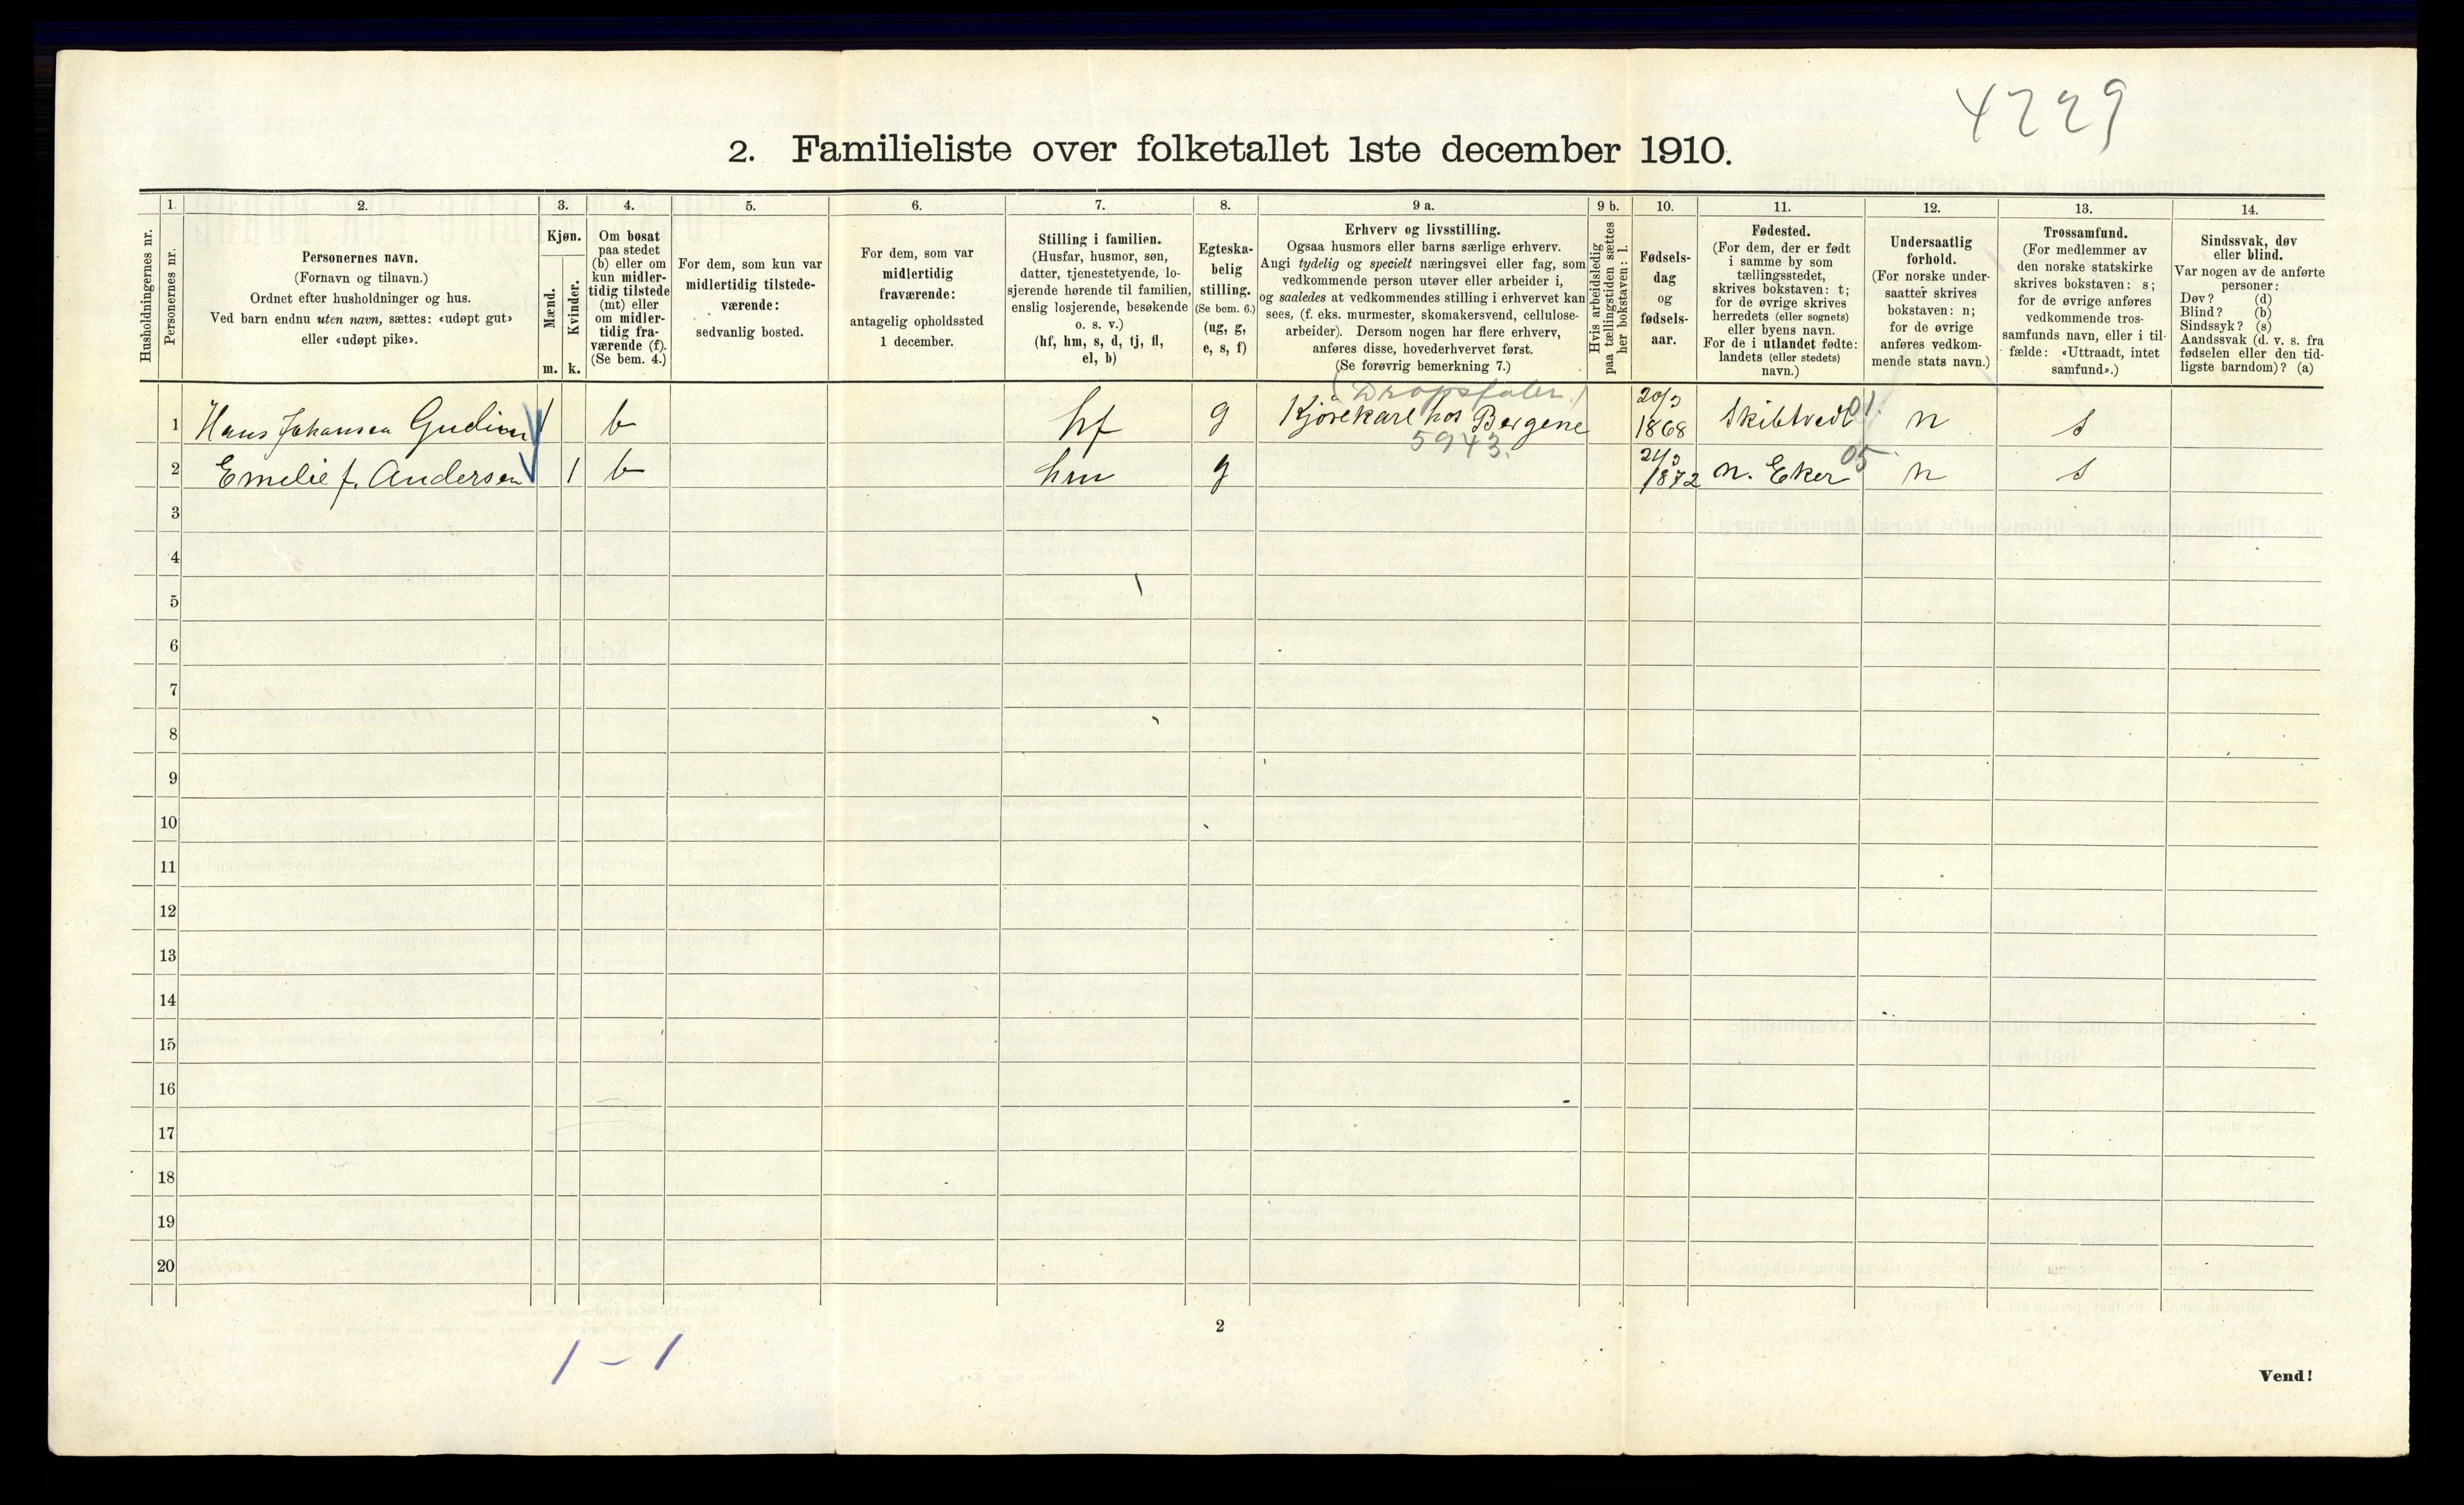 4229
2. Familieliste over folketallet 1ste december 1910.
Husholdningernes nr.
1.
Personernes nr.
2.
Personernes navn.
(Fornavn og tilnavn.)
Ordnet efter husholdninger og hus.
Ved barn endnu uten navn, sættes: «udøpt gut»
eller «udøpt pike».
3.
Kjøn.
Mænd.
m.
Kvinder.
k.
4.
Om bosat
paa stedet
(b) eller om
kun midler-
tidig tilstede
(mt) eller
om midler-
tidig fra-
værende (f).
(Se bem. 4.)
5.
For dem, som kun var
midlertidig tilstede-
værende:
sedvanlig bosted.
6.
For dem, som var
midlertidig
fraværende:
antagelig opholdssted
1 december.
7.
Stilling i familien.
(Husfar, husmor, søn,
datter, tjenestetyende, lo-
sjerende hørende til familien,
enslig losjerende, besøkende
o. s. v.)
(hf, hm, s, d, tj, fl,
el, b)
8.
Egteska-
belig
stilling.
(Se bem. 6.)
(ug, g,
e, s, f)
9 a.
Erhverv og livsstilling.
Ogsaa husmors eller barns særlige erhverv.
Angi tydelig og specielt næringsvei eller fag, som
vedkommende person utøver eller arbeider i,
og saaledes at vedkommendes stilling i erhvervet kan
sees, (f. eks. murmester, skomakersvend, cellulose-
arbeider). Dersom nogen har flere erhverv,
anføres disse, hovederhvervet først.
(Se forøvrig bemerkning 7.)
9 b.
Hvis arbeidsledig
paa tællingstiden sættes
her bokstaven: l.
10.
Fødsels-
dag
og
fødsels-
aar.
11.
Fødested.
(For dem, der er født
i samme by som
tællingsstedet,
skrives bokstaven: t;
for de øvrige skrives
herredets (eller sognets)
eller byens navn.
For de i utlandet fødte:
landets (eller stedets)
navn.)
12.
Undersaatlig
forhold.
(For norske under-
saatter skrives
bokstaven: n;
for de øvrige
anføres vedkom-
mende stats navn.)
13.
Trossamfund.
(For medlemmer av
den norske statskirke
skrives bokstaven: s;
for de øvrige anføres
vedkommende tros-
samfunds navn, eller i til-
fælde: «Uttraadt, intet
samfund».)
14.
Sindssvak, døv
eller blind.
Var nogen av de anførte
personer:
Døv? (d)
Blind? (b)
Sindssyk? (s)
Aandssvak (d. v. s. fra
fødselen eller den tid-
ligste barndom)? (a)
1 Hans Johansen Gudim 1 b hf g Kjørekarl hos Bergene 5943. 20/3 1868 Skibtvedt 01. n s
2 Emelie f. Andersen 1 b hm g 24/3 1872 N. Eker 05 n s
3
4
5
6
7
8
9
10
11
12
13
14
15
16
17
18
19
20
2
1 – 1
Vend!